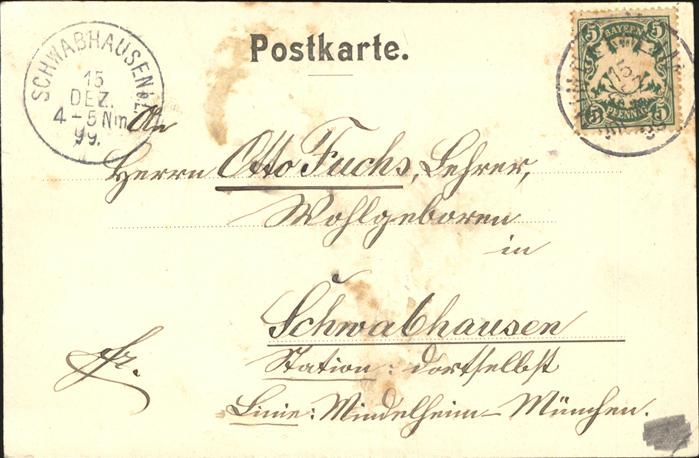 Postkarte.
SCHWABHAUSEN
15
DEZ.
4-5 Nm
99.
5 BAYERN 5
5 PFENNIG 5
An
Herrn Otto Fuchs, Lehrer,
Wohlgeboren
in
Schwabhausen
Station: dortselbst
Linie: Mindelheim-München.
fr.